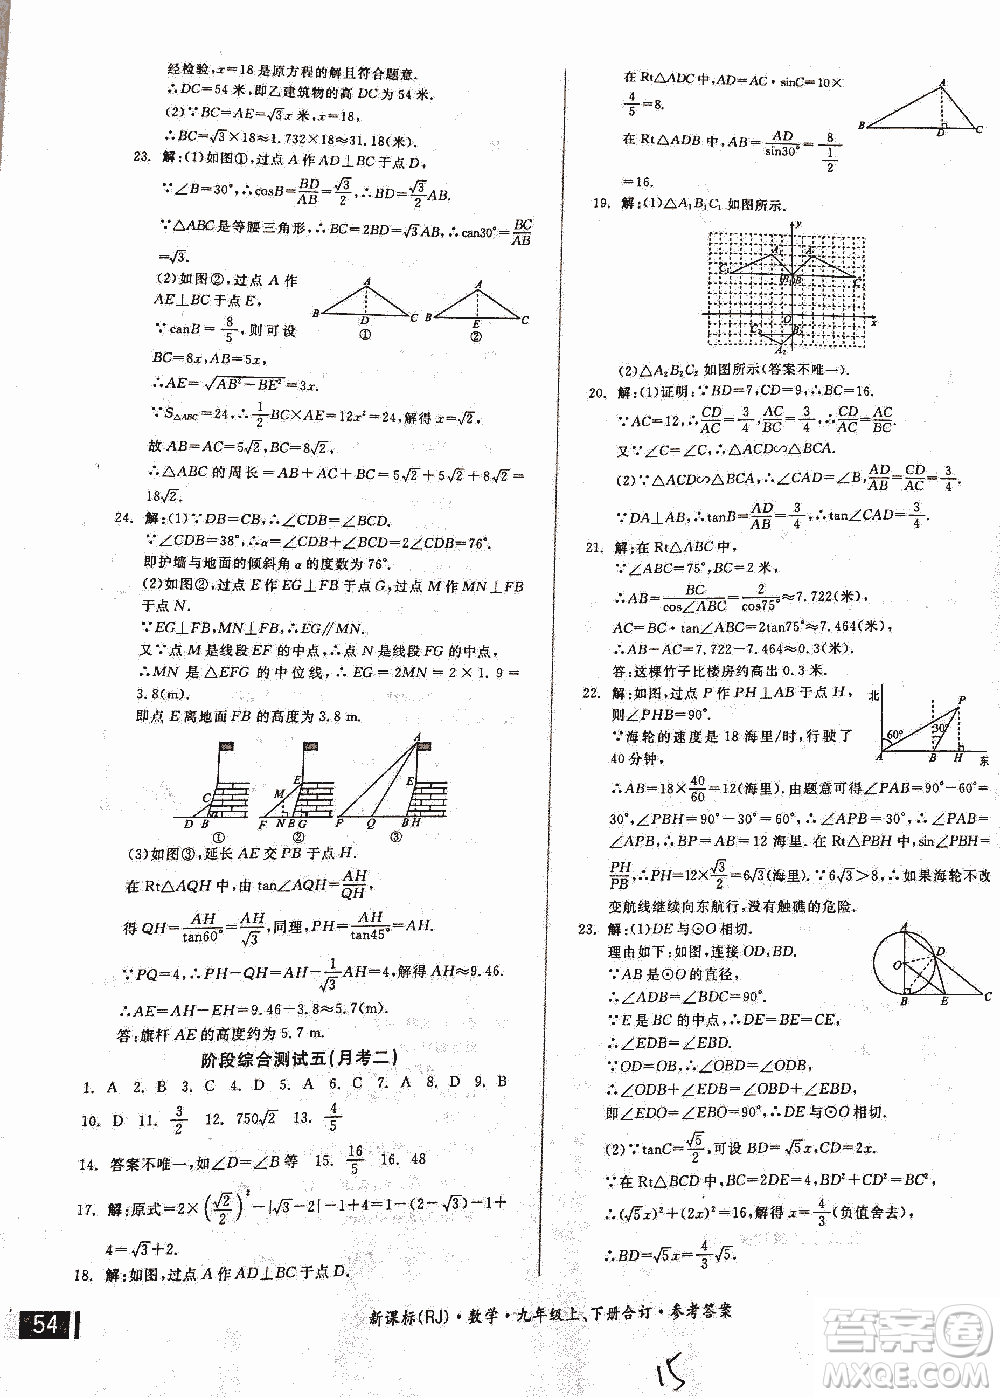 经检验,x=18是原方程的解且符合题意.
∴DC=54米,即乙建筑物的高DC为54米.
(2)∵BC=AE=√3x米,x=18,
∴BC=√3×18≈1.732×18≈31.18(米).
23. 解:(1)如图①,过点A作AD⊥BC于点D,
∵∠B=30°,∴cosB=BD/AB=√3/2,∴BD=√3/2AB.
∵△ABC是等腰三角形,∴BC=2BD=√3AB,∴can30°=BC/AB
=√3.
(2)如图②,过点A作
AE⊥BC于点E,
∵canB=8/5,则可设
BC=8x,AB=5x,
∴AE=√(AB²-BE²)=3x.
A B D C ①
A B E C ②
∵S△ABC=24,∴1/2BC×AE=12x²=24,解得x=√2,
故AB=AC=5√2,BC=8√2,
∴△ABC的周长=AB+AC+BC=5√2+5√2+8√2=
18√2.
24. 解:(1)∵DB=CB,∴∠CDB=∠BCD.
∵∠CDB=38°,∴α=∠CDB+∠BCD=2∠CDB=76°.
即护墙与地面的倾斜角α的度数为76°.
(2)如图②,过点E作EG⊥FB于点G,过点M作MN⊥FB
于点N.
∵EG⊥FB,MN⊥FB,∴EG∥MN.
又∵点M是线段EF的中点,∴点N是线段FG的中点,
∴MN是△EFG的中位线,∴EG=2MN=2×1.9=
3.8(m).
即点E离地面FB的高度为3.8 m.
C D B ①
E M F N B G ②
A E P Q B H ③
(3)如图③,延长AE交PB于点H.
在Rt△AQH中,由tan∠AQH=AH/QH,
得QH=AH/tan60°=AH/√3,同理,PH=AH/tan45°=AH.
∵PQ=4,∴PH-QH=4,∴AH-1/√3AH=4,解得AH≈9.46.
∴AE=AH-EH=9.46-3.8≈5.7(m).
答:旗杆AE的高度约为5.7 m.
阶段综合测试五(月考二)
1. A 2. B 3. B 4. C 5. A 6. C 7. D 8. D 9. B
10. D 11. 3/2 12. 750√2 13. 4/5
14. 答案不唯一,如∠D=∠B等 15. 16/5 16. 48
17. 解:原式=2×(√2/2)²-|√3-2|-1+4=2×1/2+√3-2-1+
4=√3+2.
18. 解:如图,过点A作AD⊥BC于点D.
在Rt△ADC中,AD=AC·sinC=10×
4/5=8.
在Rt△ADB中,AB=AD/sin30°=8/(1/2)
=16.
A B D C
19. 解:(1)△A₁B₁C₁如图所示.
y A₁ A C₁ B₁ B C O x B₂ A₂
(2)△A₂B₂C₂如图所示(答案不唯一).
20. 解:(1)证明:∵BD=7,CD=9,∴BC=16.
∵AC=12,∴CD/AC=3/4,AC/BC=3/4,∴CD/AC=AC/BC.
又∵∠C=∠C,∴△ACD∽△BCA.
(2)∵△ACD∽△BCA,∴∠CAD=∠B,AD/AB=CD/AC=3/4.
∵DA⊥AB,∴tanB=AD/AB=3/4,∴tan∠CAD=3/4.
21. 解:在Rt△ABC中,
∵∠ABC=75°,BC=2米,
∴AB=BC/cos∠ABC=2/cos75°≈7.722(米),
AC=BC·tan∠ABC=2tan75°≈7.464(米),
∴AB-AC=7.722-7.464≈0.3(米).
答:这棵竹子比楼房约高出0.3米.
22. 解:如图,过点P作PH⊥AB于点H,
则∠PHB=90°.
∵海轮的速度是18海里/时,行驶了
40分钟,
北 P 60° 30° A B H 东
∴AB=18×40/60=12(海里).由题意可得∠PAB=90°-60°=
30°,∠PBH=90°-30°=60°,∴∠APB=∠PBH-∠PAB=
30°=∠PAB,∴BP=AB=12海里.在Rt△PBH中,sin∠PBH=
PH/PB,∴PH=12×√3/2=6√3(海里).∵6√3>8,∴如果海轮不改
变航线继续向东航行,没有触礁的危险.
23. 解:(1)DE与⊙O相切.
理由如下:如图,连接OD,BD.
∵AB是⊙O的直径,
∴∠ADB=∠BDC=90°.
∵E是BC的中点,∴DE=BE=CE,
∴∠EBD=∠EDB.
A D O B E C
∵OD=OB,∴∠OBD=∠ODB,∴∠EBO=∠EDO.
∵∠ABC=90°,∴∠EDO=90°,∴DE与⊙O相切.
(2)∵tanC=√5/2,可设BD=√5x,CD=2x.
∵在Rt△BCD中,BC=2DE=4,BD²+CD²=BC²,
∴(√5x)²+(2x)²=16,解得x=4/3(负值舍去),
∴BD=√5x=4/3√5.
54
新课标(RJ)·数学·九年级上、下册合订·参考答案
15
答案圈
MXQE.COM